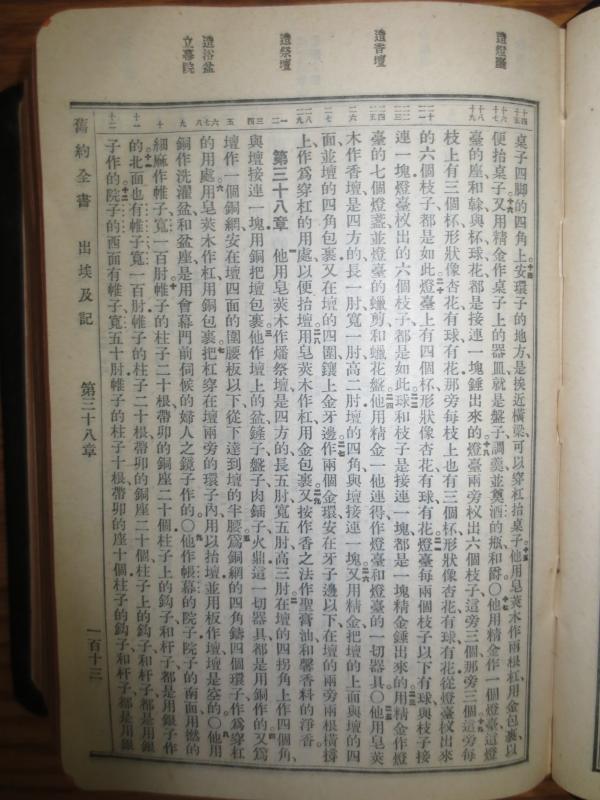 造燈臺
造香壇
造祭壇
造浴盆
立幕院
桌子四脚的四角上安環子的地方是挨近橫梁可以穿杠抬桌子他用皂莢木作兩根杠用金包裹以
便抬桌子又用精金作桌子上的器皿就是盤子調羹並奠酒的瓶和爵〇他用精金作一個燈臺這燈
臺的座和榦與杯球花都是接連一塊錘出來的燈臺兩旁杈出六個枝子這旁三個那旁三個這旁每
枝上有三個杯形狀像杏花有球有花那旁每枝上也有三個杯形狀像杏花有球有花從燈臺杈出來
的六個枝子都是如此燈臺上有四個杯形狀像杏花有球有花燈臺每兩個枝子以下有球與枝子接
連一塊燈臺杈出的六個枝子都是如此球和枝子是接連一塊都是一塊精金錘出來的用精金作燈
臺的七個燈盞並燈臺的蠟剪和蠟花盤他用精金一他連得作燈臺和燈臺的一切器具〇他用皂莢
木作香壇是四方的長一肘寬一肘高二肘壇的四角與壇接連一塊又用精金把壇的上面與壇的四
面並壇的四角包裹又在壇的四圍鑲上金牙邊作兩個金環安在牙子邊以下在壇的兩旁兩根橫撐
上作爲穿杠的用處以便抬壇用皂莢木作杠用金包裹又按作香之法作聖膏油和馨香料的淨香
第三十八章 他用皂莢木作燔祭壇是四方的長五肘寬五肘高三肘在壇的四拐角上作四個角
與壇接連一塊用銅把壇包裹他作壇上的盆鏟子盤子肉鍤子火鼎這一切器具都是用銅作的又爲
壇作一個銅網安在壇四面的圍腰板以下從下達到壇的半腰爲銅網的四角鑄四個環子作爲穿杠
的用處用皂莢木作杠用銅包裹把杠穿在壇兩旁的環子內用以抬壇並用板作壇壇是空的〇他用
銅作洗濯盆和盆座是用會幕門前伺候的婦人之鏡子作的〇他作帳幕的院子院子的南面用撚的
細麻作帷子寬一百肘帷子的柱子二十根帶卯的銅座二十個柱子上的鈎子和杆子都是用銀子作
的北面也有帷子寬一百肘帷子的柱子二十根帶卯的銅座二十個柱子上的鈎子和杆子都是用銀
子作的院子的西面有帷子寬五十肘帷子的柱子十根帶卯的座十個柱子的鈎子和杆子都是用銀
舊約全書 出埃及記 第三十八章 一百十三